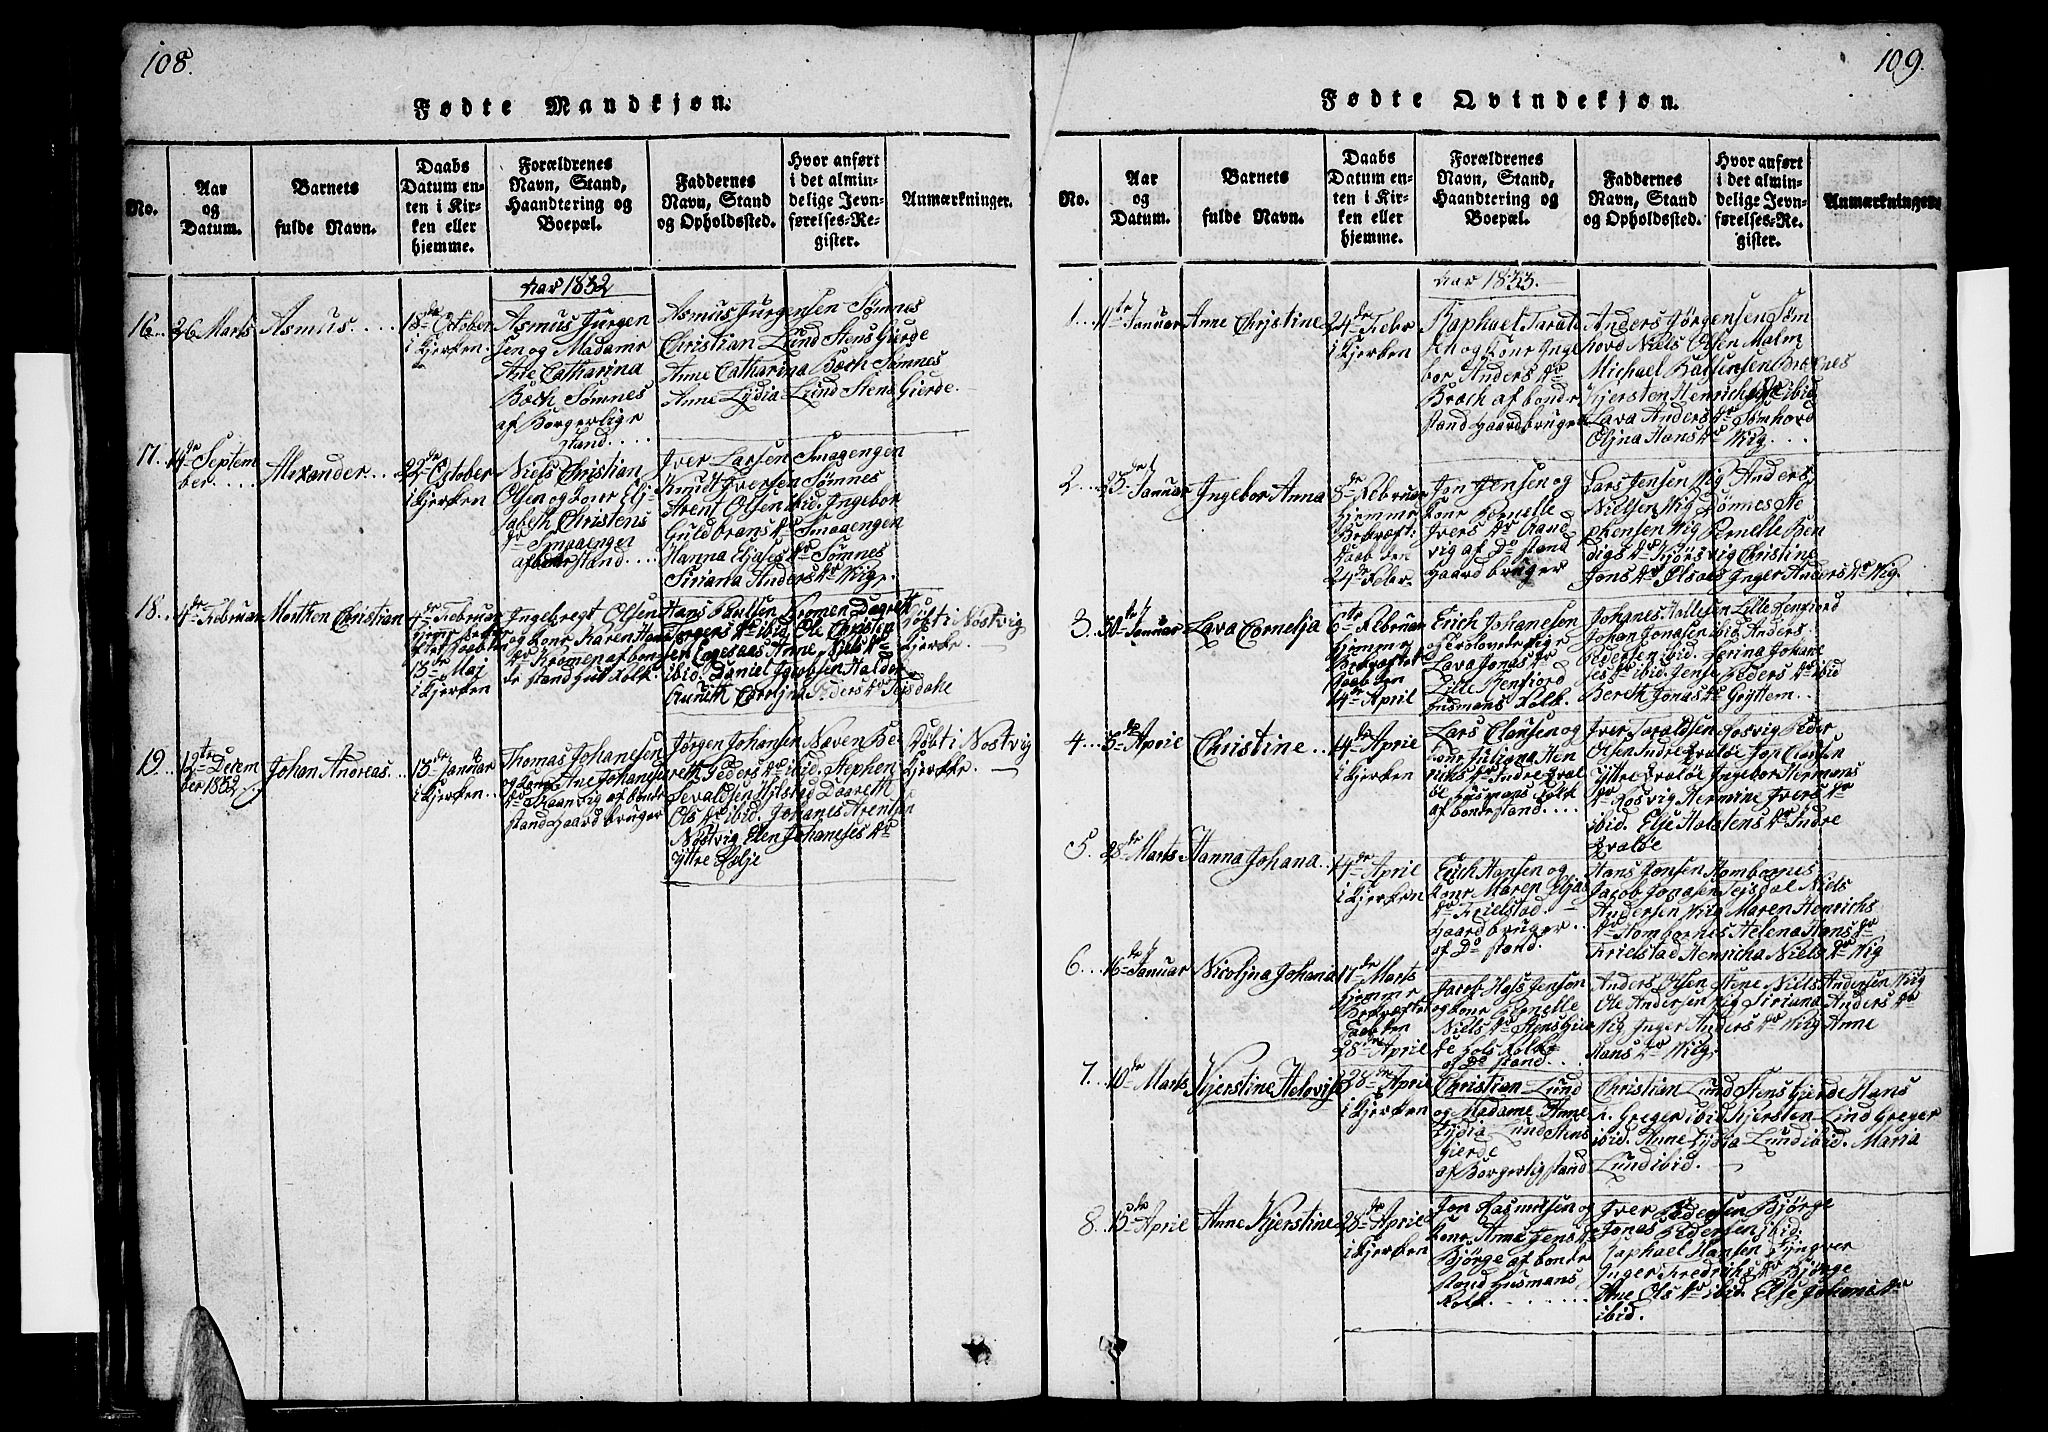 108.
Fødte Mandkjøn.
No.
Aar
og
Datum.
Barnets
fulde Navn.
Daabs
Datum en-
ten i Kir-
ken eller
hjemme.
Forældrenes
Navn, Stand,
Haandtering og
Boepæl.
Faddernes
Navn, Stand
og Opholdssted.
Hvor anført
i det almin-
delige Jevn-
førelses-Re-
gister.
Anmærkninger.
Aar 1832
16. 26 Marts
Asmus
18de October
i Kjerken
Asmus Jurgen
sen og Madame
Ane Catharina
Bech Sømnes
af Borgerlige
stand
Asmus Jurgensen Sømnes
Christian Lund Stens Gierde
Anne Catharina Bech Sømnes
Anne Lydia Lund Stens Gierde
17. 14de Septem
ber
Alexander
22de October
i Kjerken
Niels Christian
Olsen og kone Eli-
sabeth Christens
dr Smaaengen
af bonde stand
Iver Larsen Smaaengen
Knudt Iversen Sømnes
Arent Olsen ibid. Ingebor
Guldbrans dr Smaaengen
Hanna Eliases dr Sømnes
Siriana Anders dr Wig
18. 4de Februar
Morthen Christian
4de Februar
13de Maj
i Kjerken
Ingebregt Olsen
og kone Karen Hans
dr Kromen af bon
de stand Huus Folk
Hans Povelsen Kromen Dagrett
Jørgens dr ibid. Ole Christen
sen Anne Niels dr
ibid. Daniel Jacobsen
Peders dr Tejsdahe
Døbt i Nøstvig
Kjerke
19. 12te Decem
ber 1832
Johan Andreas
13de Januar
i Kjerken
Thomas Johanesen
og kone Ane Johanes
dr Skaanvig af bonde
stand Gaardbruger
Jørgen Johansen Næven Be
reth Peders dr ibid. Stephen
Sevaldsen Hilstad Daareth
Ols dr ibid. Johanes Arentsen
Nøstvig Elen Johaneses dr
Yttre Eslje
Døbt i Nøstvig
Kjerke
109.
Fødte Qvindekjøn.
No.
Aar
og
Datum.
Barnets
fulde Navn.
Daabs
Datum en-
ten i Kir-
ken eller
hjemme.
Forældrenes
Navn, Stand,
Haandtering og
Boepæl.
Faddernes
Navn, Stand
og Opholdssted.
Hvor anført
i det almin-
delige Jevn-
førelses-Re-
gister.
Anmærkninger
Aar 1833.
1. 11te Januar
Anne Christine
24de Febr
i Kjerken
Raphael Tarald
sen og kone Inge
bor Anders dr
Brech af bonde
stand Gaardbruger
Anders Jørgensen Søm
hord Niels Olsen Malm
Michael Baltzersen
Kjersten Henrichs dr ibid
Lava Anders dr Sømhord
Eljna Hans dr Wig
2. 25de Januar
Ingebor Anna
8de Februar
hjemme
Bekræft:
Daab den
24de Febr.
Jon Jensen og
kone Pernelle
Ivers dr Sand
vig af Do stand
Gaardbruger
Lars Jensen Wig Anders
Nielsen Wig Dønnes Ste
phensen Wig Pernelle Ben
digs dr Kjørsvig Christine
Jons dr Ølsaas Inger Anders dr Wig.
3. 30te Januar
Lava Cornelja
6te Februar
hjemme
Bekræftet
Daab den
14de April
Erich Johanesen
og Troelovede Pige
Lava Jonas dr
Lille Tenfjord
Husmans Folk
Johanes Hallesen Lille Tenfiord
Johan Jonasen ibid. Anders
Pedersen ibid. Serina Johane
ses dr ibid. Jense Peders dr ibid
Bereth Jonas dr Gryttem
4. 5de Aprie
Christine
14de Aprie
i Kjerken
Lars Clausen og
kone Juliana Hen
richs dr Indre Qval
øe Husmans Folk
af bonde stand
Iver Taraldsen Rosvig Peder
Olsen Indre Qvaløe Jon Clausen
Yttre Qvaløe Ingebor Hermans
dr Rosvig Hermine Ivers dr
ibid. Else Holstens dr Indre
Qvaløe
5. 28de Marts
Hanna Johana
14de Aprie
i Kjerken
Erich Hansen og
kone Maren Elias
dr Trielstad
Gaardbruger
af Do stand.
Hans Jonsen Hombornes
Jacob Jonasen Tejsdal Niels
Andersen Wig Maren Henrichs
dr Hombornes Helena Hans dr
Trielstad Henricha Niels dr Wig
6. 16de Januar
Nicoljna Johana
17de Marts
hjemme
Bekræftet
Daab den
28de April
Jacob Hass Jenson
og kone Pernelle
Niels dr Stens Gier
de Hols Folk
af Do stand
Anders Olsen Stene Niels Andersen Wig
Ole Andersen Wig Siriana Anders dr
Wig Inger Anders dr Wig Anne
Hans dr Wig
7. 10de Marts
Kjerstine Helovise
28de Aprie
i Kjerken
Christian Lund
og Madame Anne
Lydia Lund Stens
Gierde
af Borgerlig stand
Christian Lund Stens Gierde Hans
A. Greger ibid Kjersten Lind Greger
ibid. Anne Lydia Lund ibid. Maria
Lund ibid.
8. 15de April
Anne Kjerstine
28de Aprie
i Kjerken
Jon Rasmusen og
kone Anne Jens dr
Bjørge af bonde
stand Husmans
Folk
Iver Pedersen Bjørge
Jonas Pedersen ibid
Raphael Hansen Tyngver
Inger Fredrichs dr Bjørge
Ane Ols dr ibid. Else Johanes dr
ibid.